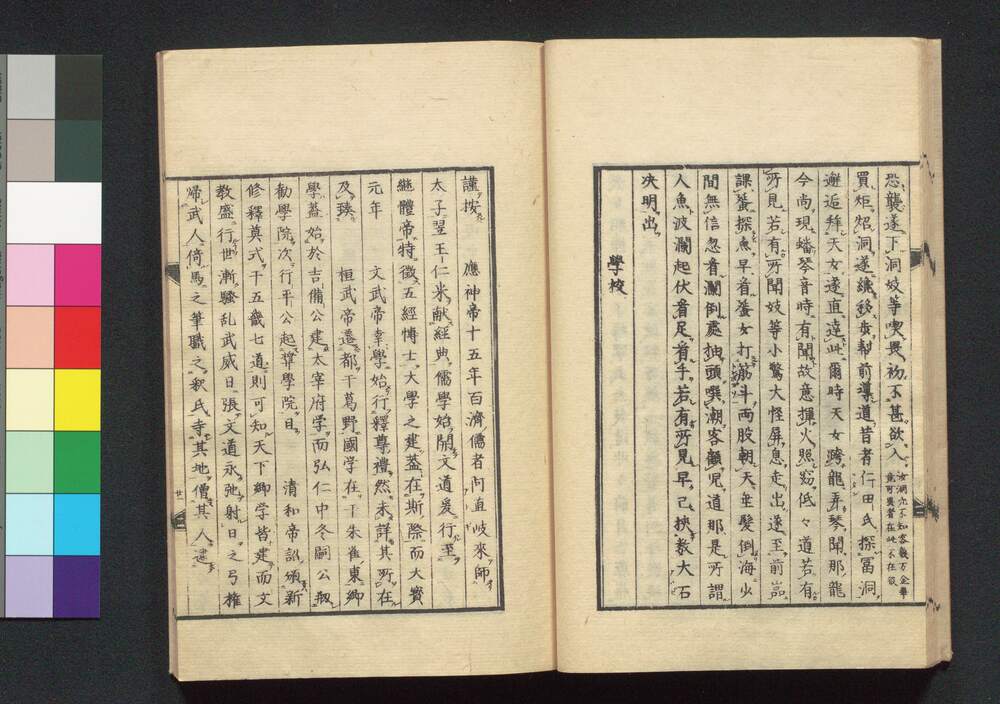 恐襲遂下洞妓等喫畏初不甚欲入
汝湖穴不知客幾万金華
竟可異者在此不在彼
買炬炤洞遂纔移歩幇前導道昔者仁田氏探冨洞
邂逅拜天女遂直達此爾時天女跨龍弄琴聞那龍
今尚現蟠琴音時有聞故意揮火照窈低々道若有
所見若有所聞妓等小驚大怪屏息走出遂至前嵓
課蜑探魚早看蜑女打筋斗両股朝天垂髪倒海少
間無信忽看瀾倒處抽頭噀潮客顧児道那是所謂
人魚波瀾起伏看足看手若有所見早已挾数大石
决明出
學挍
謹按 應神帝十五年百濟儒者阿直岐來師
太子翌王仁米献經典儒學始開文道爰行至
継體帝特徴五經博士大學之建蓋在斯際而大寳
元年 文武帝幸學始行釋尊禮然未詳其所在
及 桓武帝遷都于葛野國学在于朱雀東郷
學蓋始於吉備公建太宰府学而弘仁中冬嗣公剏
勸學院次行平公起奨學院目 清和帝詔頒新
修釋奠式于五畿七道則可知天下郷学皆建而文
教盛行世漸騒乱武威日張文道永弛射日之弓権
歸武人倚馬之筆職之釈氏寺其地僧其人逮